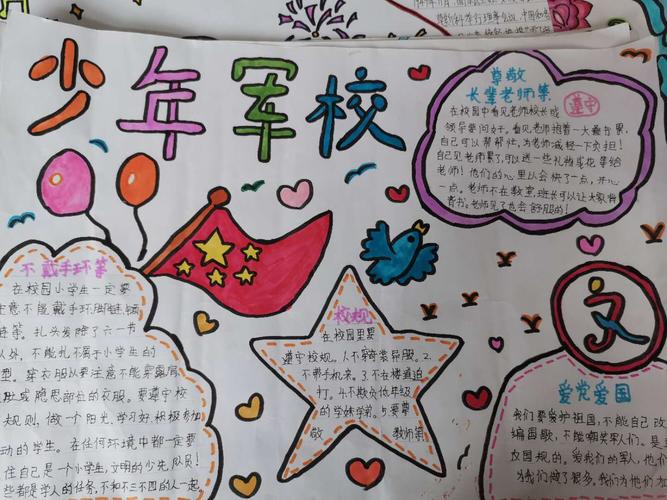 少年军校
尊敬
长辈老师等
遵守
在校园中看见老师校长或
领导要问好。看见老师抱着一大叠书累,
自己可以帮帮忙,为老师减轻一下负担!
自己见老师累了,可以送一些礼物或花等给
老师!他们的心里以会快了一点,开心
一点。老师不在教室,班长可以让大家背
背书。老师见了也会舒服的!
不戴手环等
在校园小学生一定要
注意不能戴手环,脚链,项
链等。扎头发除了六一节
以外,不能扎不属于小学生的
型。穿衣服以要注意不能穿露肩
肚或随思部位的衣服。要遵守校
规则,做一个阳光,学习好,积极参加
动的学生。在任何环境中都一定要
住自己是一个小学生,文明的少先队员!
些都是学人的任务,不和不三不四的人一起
校规
在校园里要
遵守校规。1.不穿奇装异服。2.
不带手机来。3.不在楼道追
打。4.不欺负低年级
的学妹学弟。5.要尊
敬 教师等
文
爱党爱国
我们要爱护祖国,不能自己改
编国歌,不能嘲笑军人们。是
友国规的。爱我们的军人,他们
为我们做了很多。我们为他们